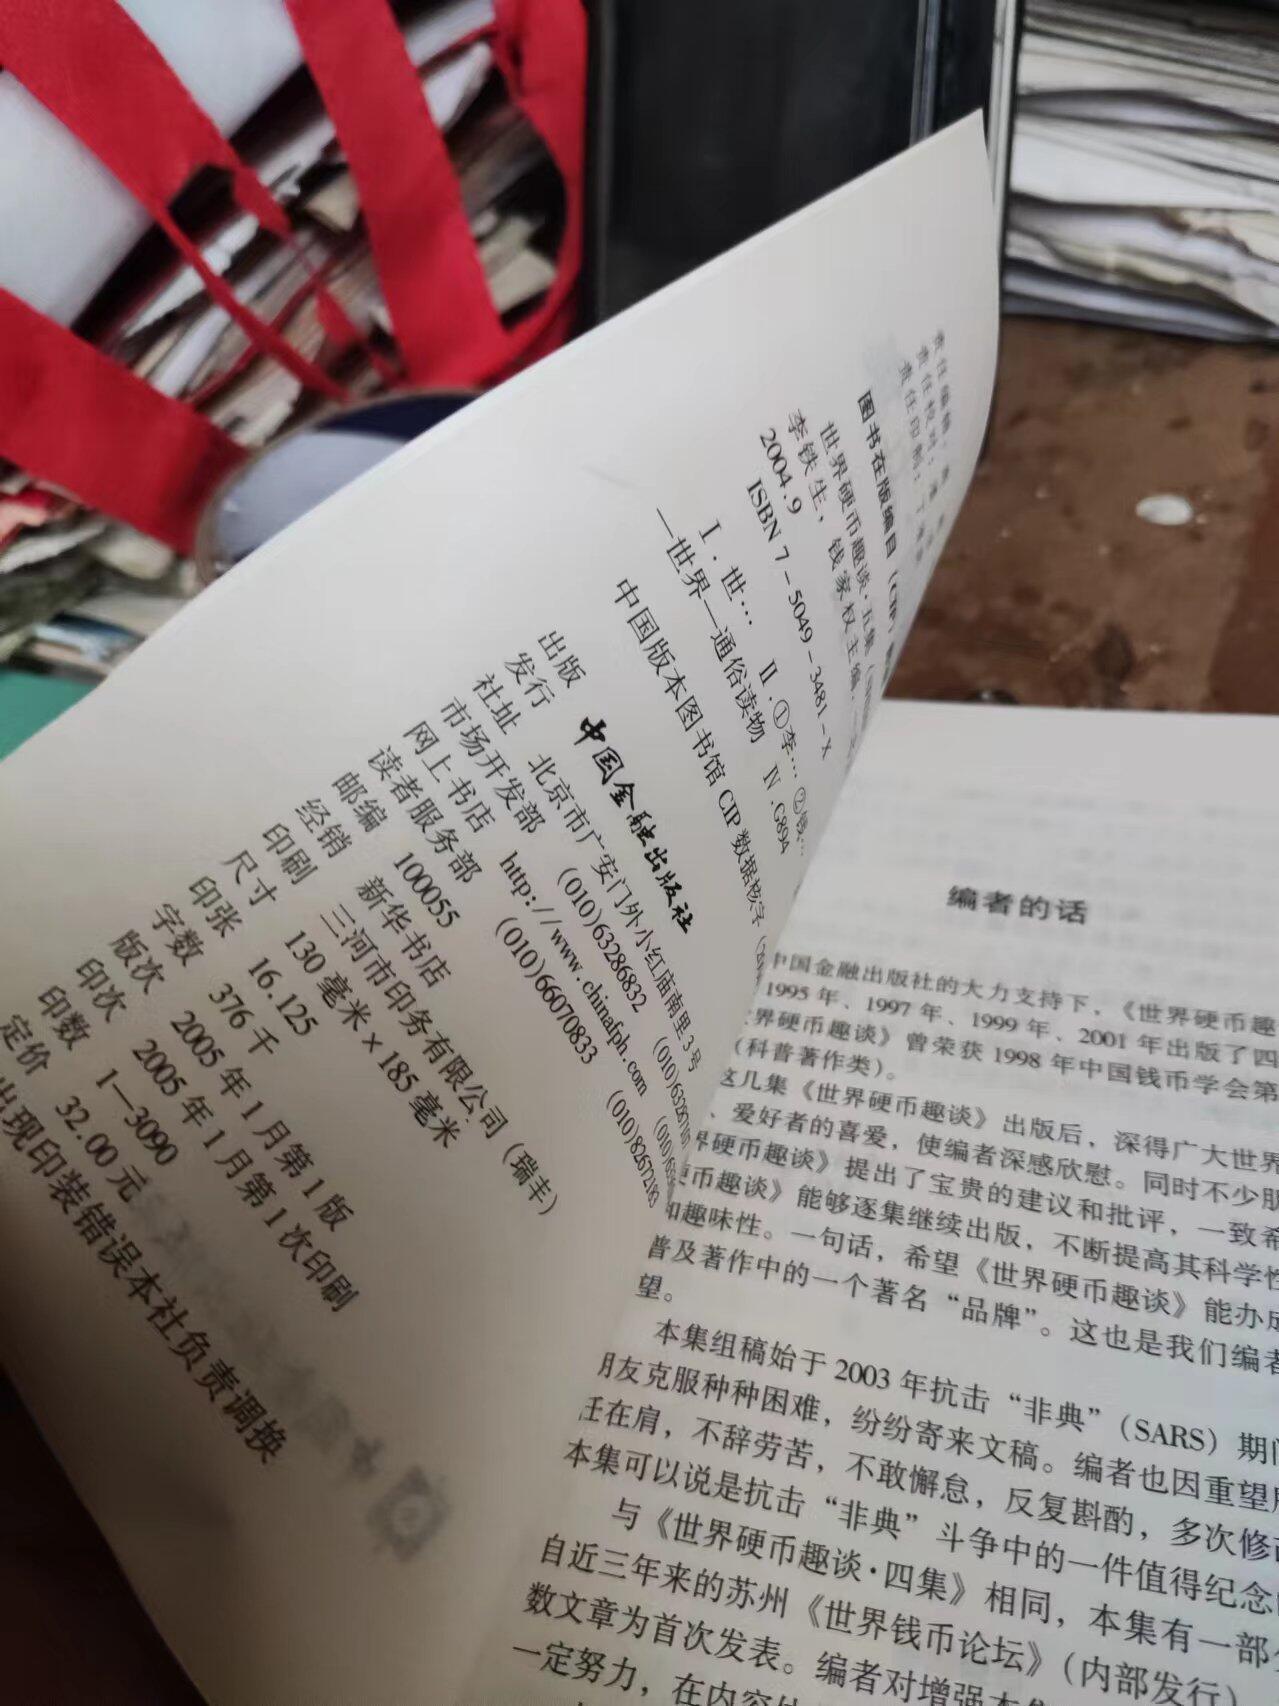 图书在版编目（CIP）
世界硬币趣谈·五集
李铁生，钱家权主编.
2004.9
ISBN 7-5049-3481-X
Ⅰ.世… Ⅱ.①李… ②钱…
—世界—通俗读物 Ⅳ.G894
中国版本图书馆 CIP 数据核字
出版
发行 中国金融出版社
社址 北京市广安门外小红庙南里3号
市场开发部 (010)63286832
网上书店 http://www.chinafph.com
读者服务部 (010)66070833 (010)82672183
邮编 100055
经销 新华书店
印刷 三河市印务有限公司（瑞丰）
尺寸 130毫米×185毫米
印张 16.125
字数 376千
版次 2005年1月第1版
印次 2005年1月第1次印刷
印数 1—3090
定价 32.00元
出现印装错误本社负责调换
编者的话
中国金融出版社的大力支持下，《世界硬币趣
1995年、1997年、1999年、2001年出版了四
界硬币趣谈》曾荣获1998年中国钱币学会第
（科普著作类）。
这几集《世界硬币趣谈》出版后，深得广大世界
、爱好者的喜爱，使编者深感欣慰。同时不少朋
界硬币趣谈》提出了宝贵的建议和批评，一致希
硬币趣谈》能够逐集继续出版，不断提高其科学性
和趣味性。一句话，希望《世界硬币趣谈》能办成
普及著作中的一个著名“品牌”。这也是我们编者
望。
本集组稿始于2003年抗击“非典”（SARS）期间
朋友克服种种困难，纷纷寄来文稿。编者也因重望
任在肩，不辞劳苦，不敢懈怠，反复斟酌，多次修
本集可以说是抗击“非典”斗争中的一件值得纪念
与《世界硬币趣谈·四集》相同，本集有一部
自近三年来的苏州《世界钱币论坛》（内部发行）
数文章为首次发表。编者对增强本集
一定努力，在内容